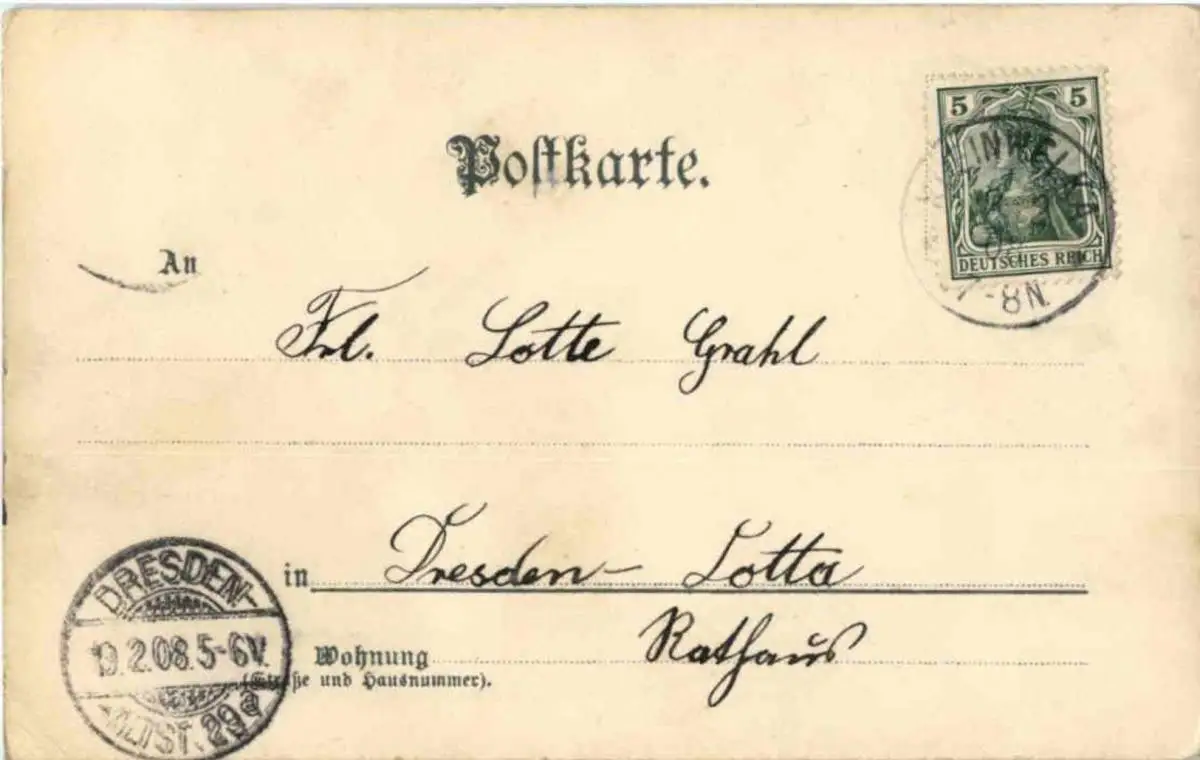 5 5
DEUTSCHES REICH
7-8N
Postkarte.
An
Frl. Lotte Grahl
in Dresden- Lotta
Rathaus
Wohnung
(Straße und Hausnummer).
DRESDEN-
19.2.08.5-6V.
ALTST. 29